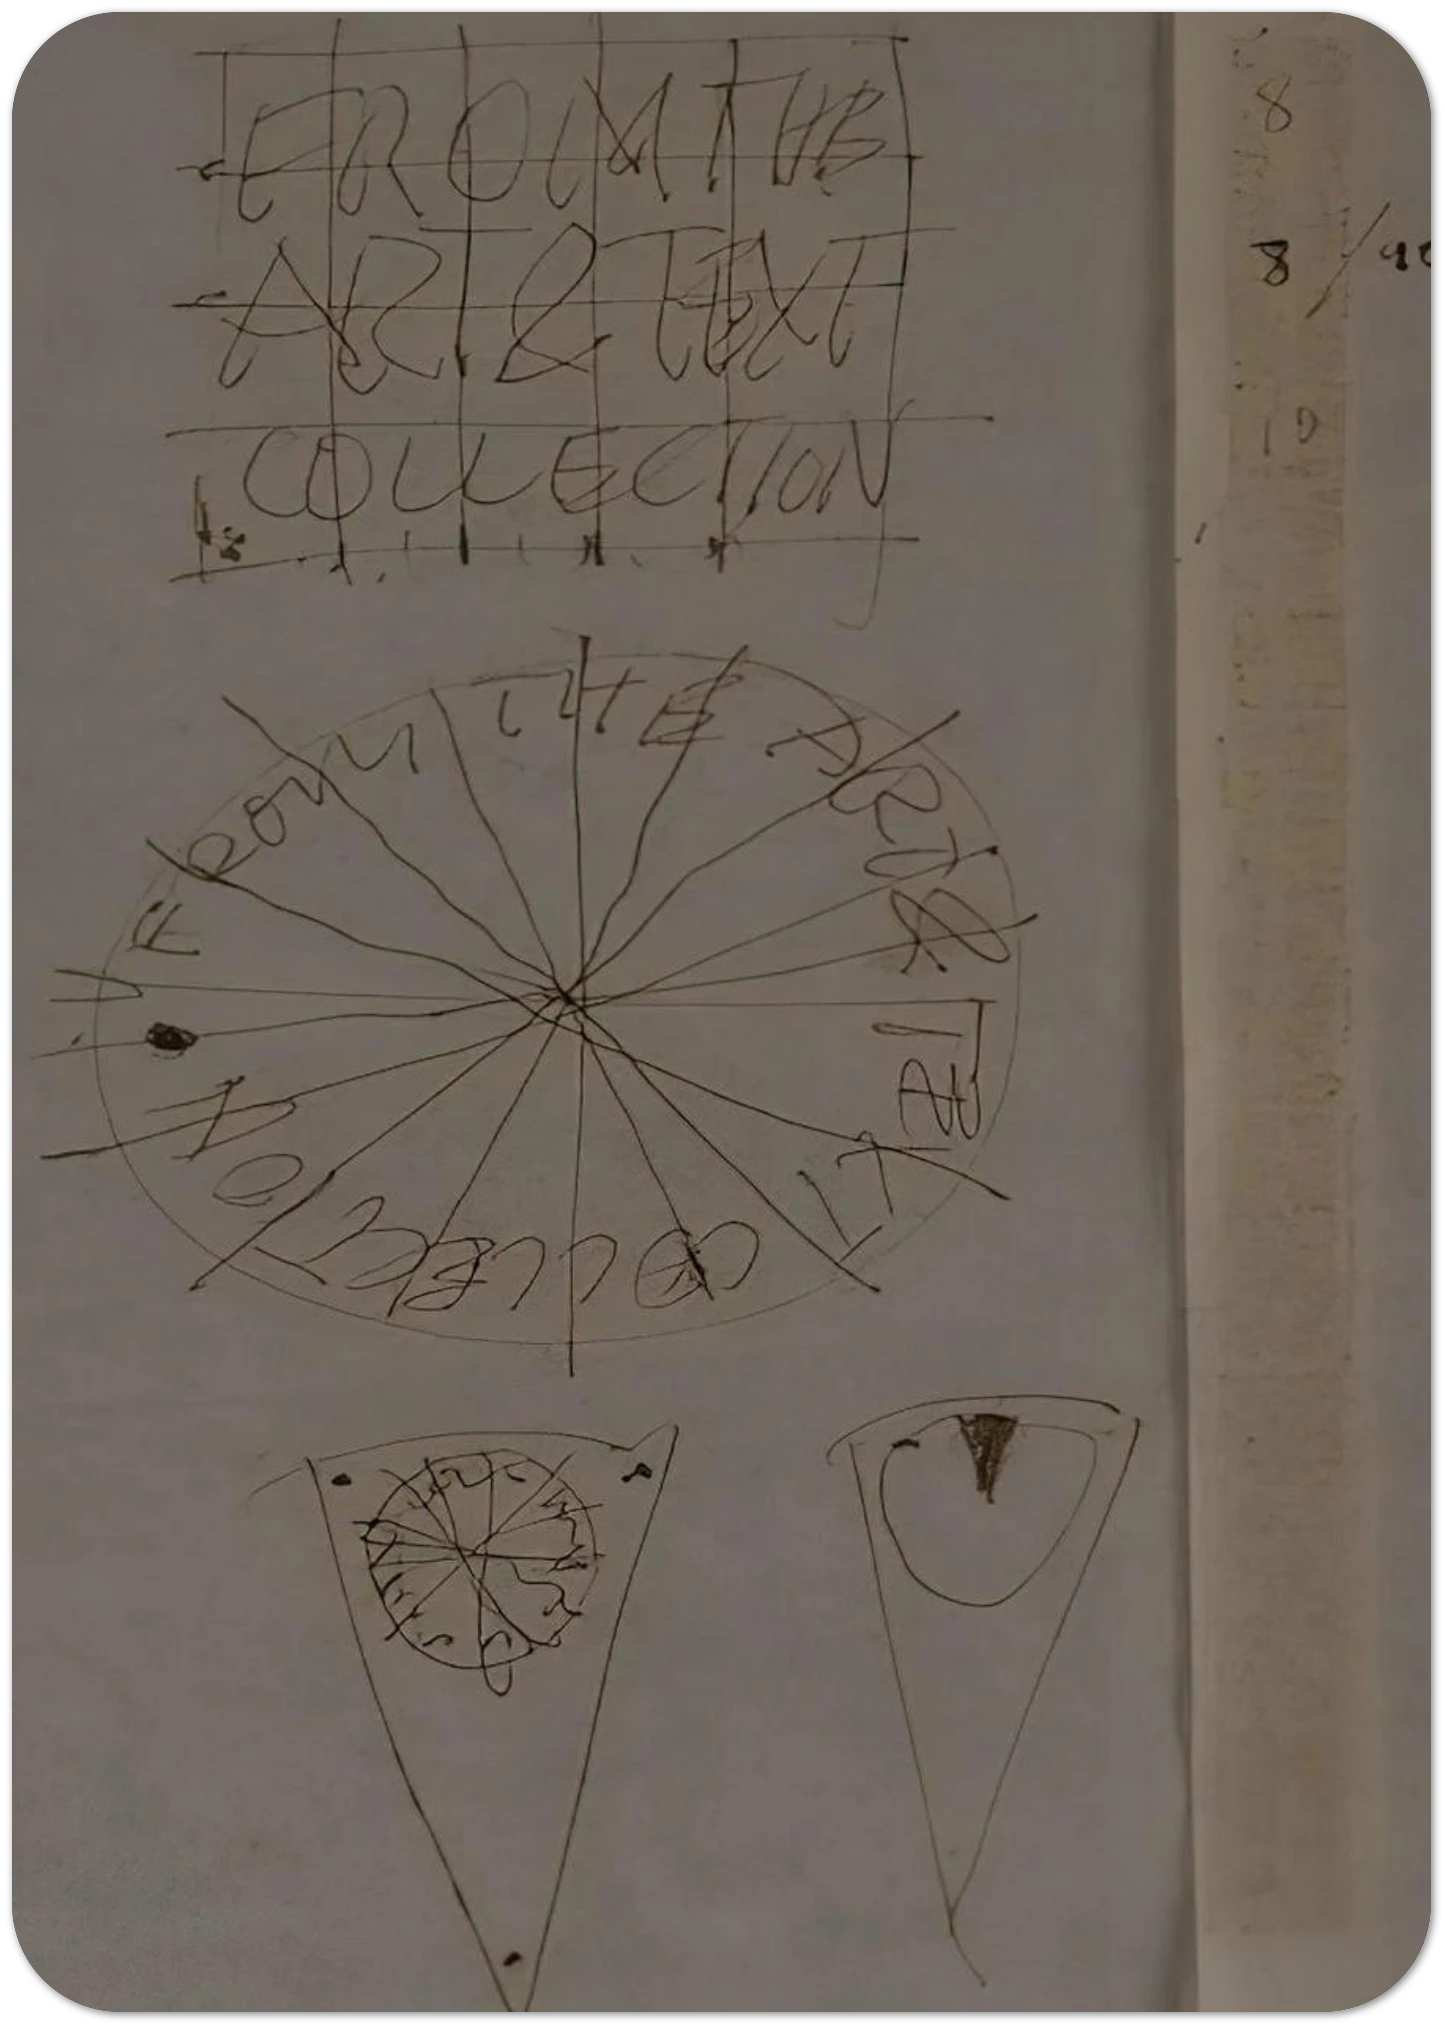 FROM THE
ART & TEXT
COLLECTION
FROM THE ART & TEXT COLLECTION
8
8 /
10